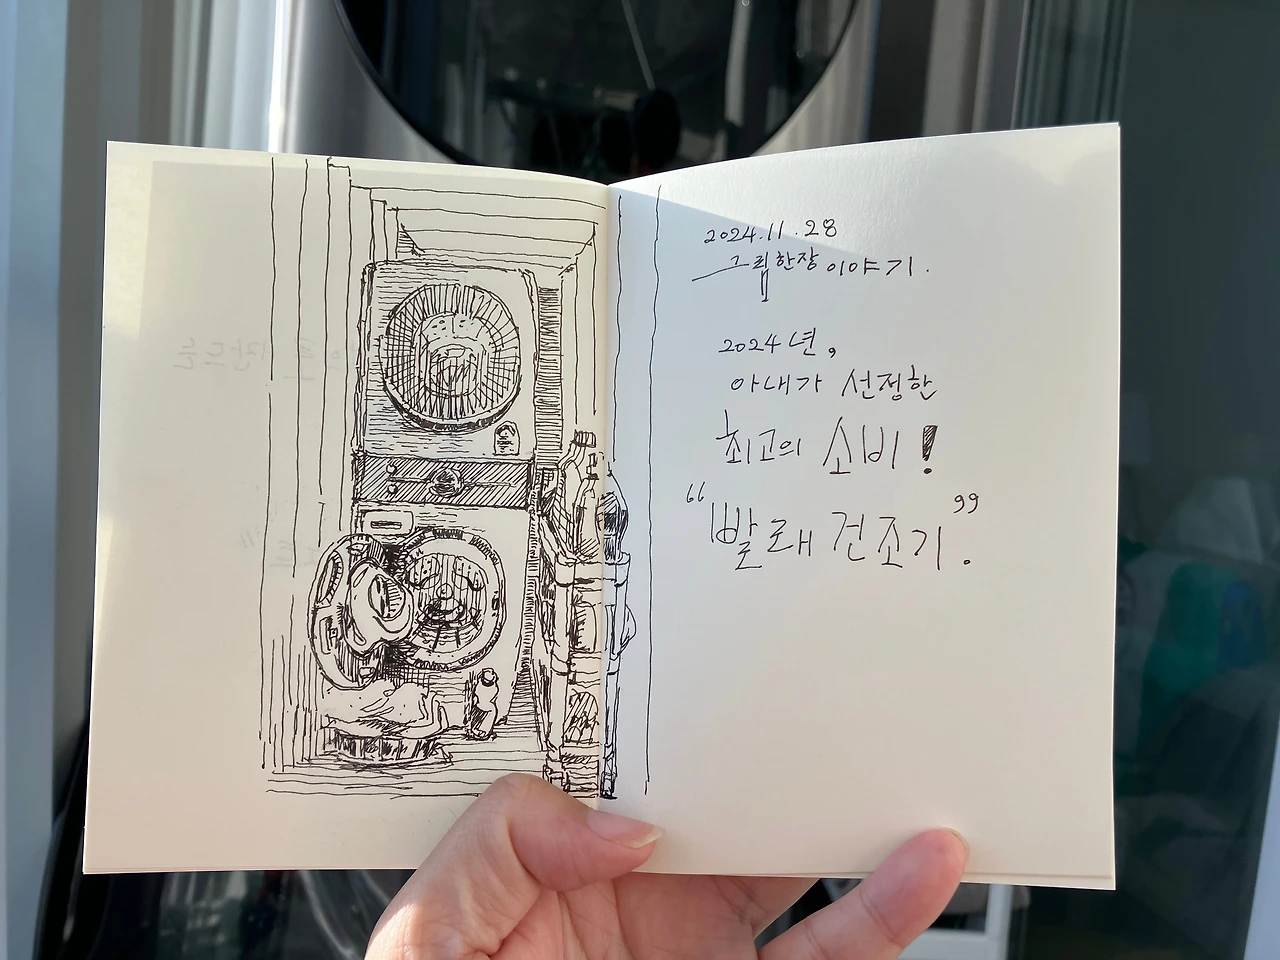 2024.11.28
그림한장 이야기.
2024년,
아내가 선정한
최고의 소비!
"빨래 건조기."